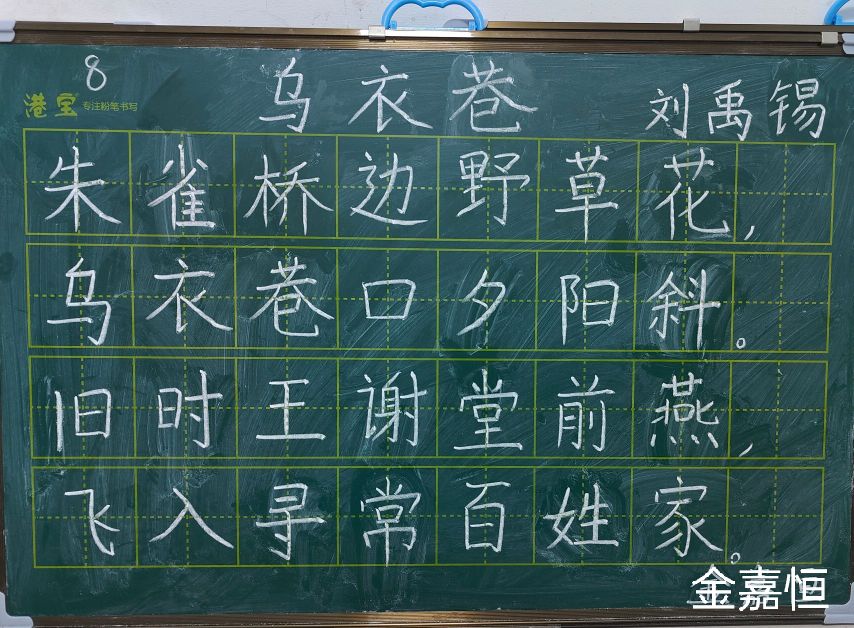 8
港宝 专注粉笔书写
乌衣巷
刘禹锡
朱雀桥边野草花，
乌衣巷口夕阳斜。
旧时王谢堂前燕，
飞入寻常百姓家。
金嘉恒